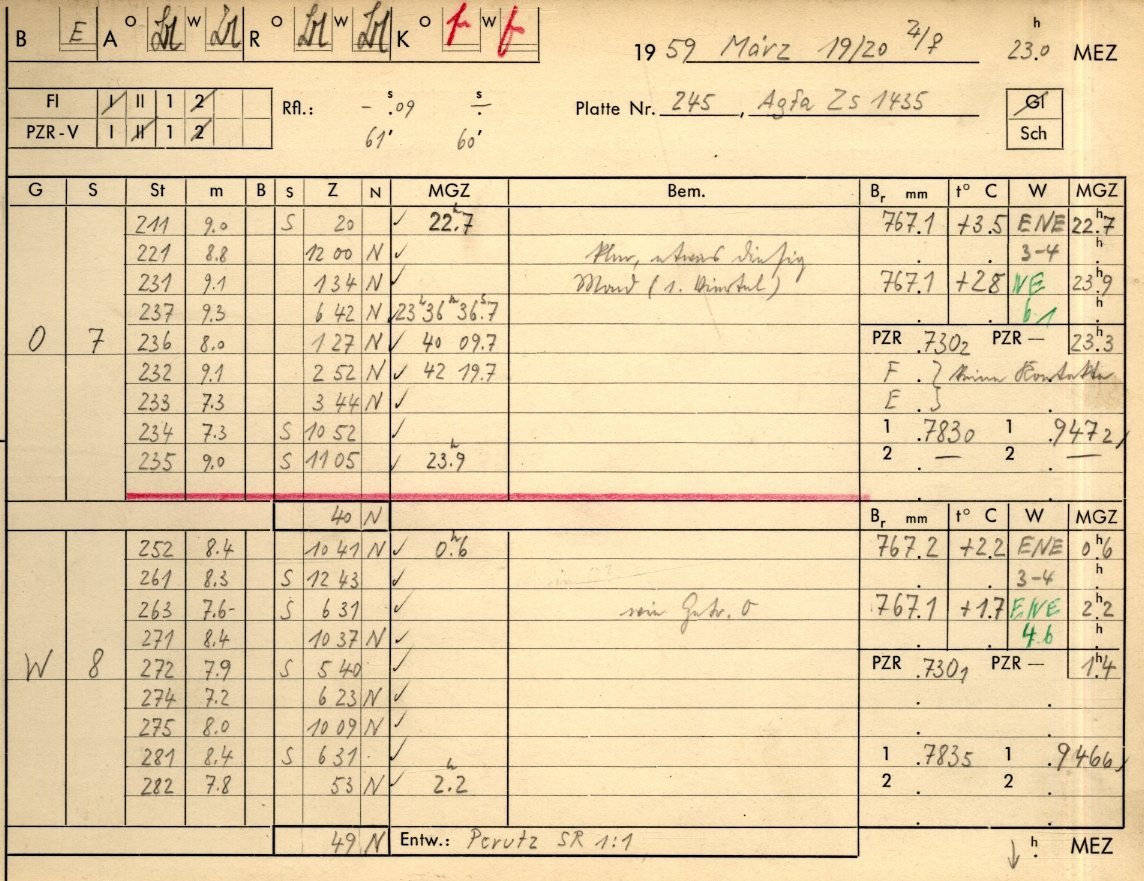 B E A O W R O W K O W
19 59 März 19/20 23.0 h MEZ
FI I II 1 2 Rfl.: - s.09 s Platte Nr. 245, Agfa Zs 1435 Gl
PZR-V I II 1 2 61' 60' Sch
G S St m B S Z N MGZ Bem. Br mm t° C W MGZ
211 9.0 S 20 ✓ 22.7 h 767.1 +3.5 ENE 22.7 h
221 8.8 12 00 N ✓ klar, etwas diesig 3-4 h
231 9.1 1 34 N ✓ Mond (1. Viertel) 767.1 +2.8 NE 23.9 h
237 9.3 6 42 N ✓ 23 h 36 m 36.7 s 6.1 h
O 7 236 8.0 1 27 N ✓ 40 09.7 PZR .7302 PZR — 23.3 h
232 9.1 2 52 N ✓ 42 19.7 F . } keine Kontakte
233 7.3 3 44 N ✓ E . }
234 7.3 S 10 52 ✓ 1 .7830 1 .9472
235 9.0 S 11 05 ✓ 23.9 h 2 . — 2 . —
40 N Br mm t° C W MGZ
252 8.4 10 41 N ✓ 0.6 h 767.2 +2.2 ENE 0.6 h
261 8.3 S 12 43 ✓ 3-4 h
263 7.6- S 6 31 ✓ wie Gstr. O 767.1 +1.7 ENE 2.2 h
271 8.4 10 37 N ✓ 4.6 h
W 8 272 7.9 S 5 40 ✓ PZR .7301 PZR — 1.4 h
274 7.2 6 23 N ✓
275 8.0 10 09 N ✓
281 8.4 S 6 31 ✓ 1 .7835 1 .9466
282 7.8 53 N ✓ 2.2 h 2 . 2 .
49 N Entw.: Perutz SR 1:1 ↓ h MEZ